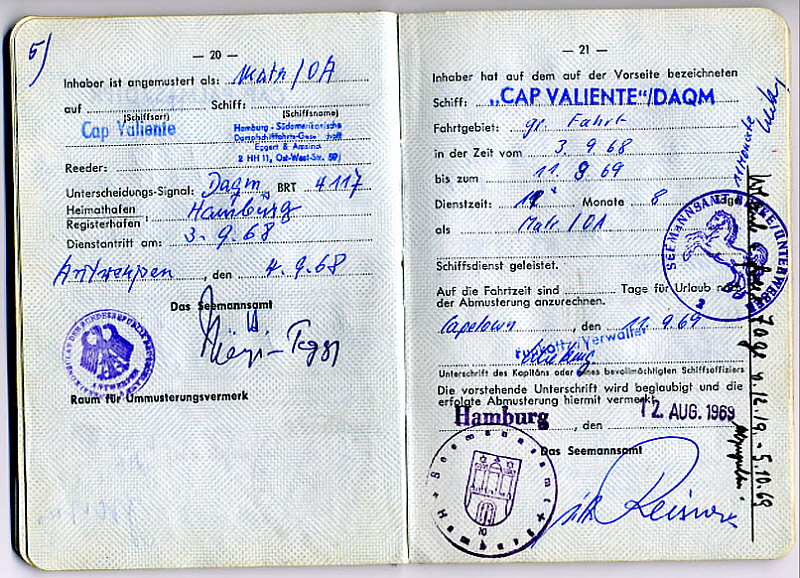 5)
— 20 —
Inhaber ist angemustert als: Matr/OA
auf Schiff:
(Schiffsart) (Schiffsname)
Cap Valiente
Hamburg - Südamerikanische
Dampfschifffahrts-Gesellschaft
Eggert & Amsinck
2 HH 11, Ost-West-Str. 59
Reeder:
Unterscheidungs-Signal: Daqm BRT 4117
Heimathafen
Registerhafen : Hamburg
Dienstantritt am: 3. 9. 68
Antwerpen, den 4. 9. 68
Das Seemannsamt
ANTWERPEN
Raum für Ummusterungsvermerk
— 21 —
Inhaber hat auf dem auf der Vorseite bezeichneten
Schiff: „CAP VALIENTE"/DAQM
Fahrtgebiet: gr. Fahrt
in der Zeit vom 3. 9 68
bis zum 11. 8 69
Dienstzeit: 11 Monate 8 Tage
als Matr/OA
Schiffsdienst geleistet.
Auf die Fahrtzeit sind Tage für Urlaub nach
der Abmusterung anzurechnen.
Capetown, den 11. 9. 69
Unterschrift des Kapitäns oder eines bevollmächtigten Schiffsoffiziers
Die vorstehende Unterschrift wird beglaubigt und die
erfolgte Abmusterung hiermit vermerkt.
Hamburg, den 12. AUG. 1969
Das Seemannsamt
Seemannsamt Hamburg
10
SEEMANNSAMT BRAKE/UNTERWESER
2
11 Monate